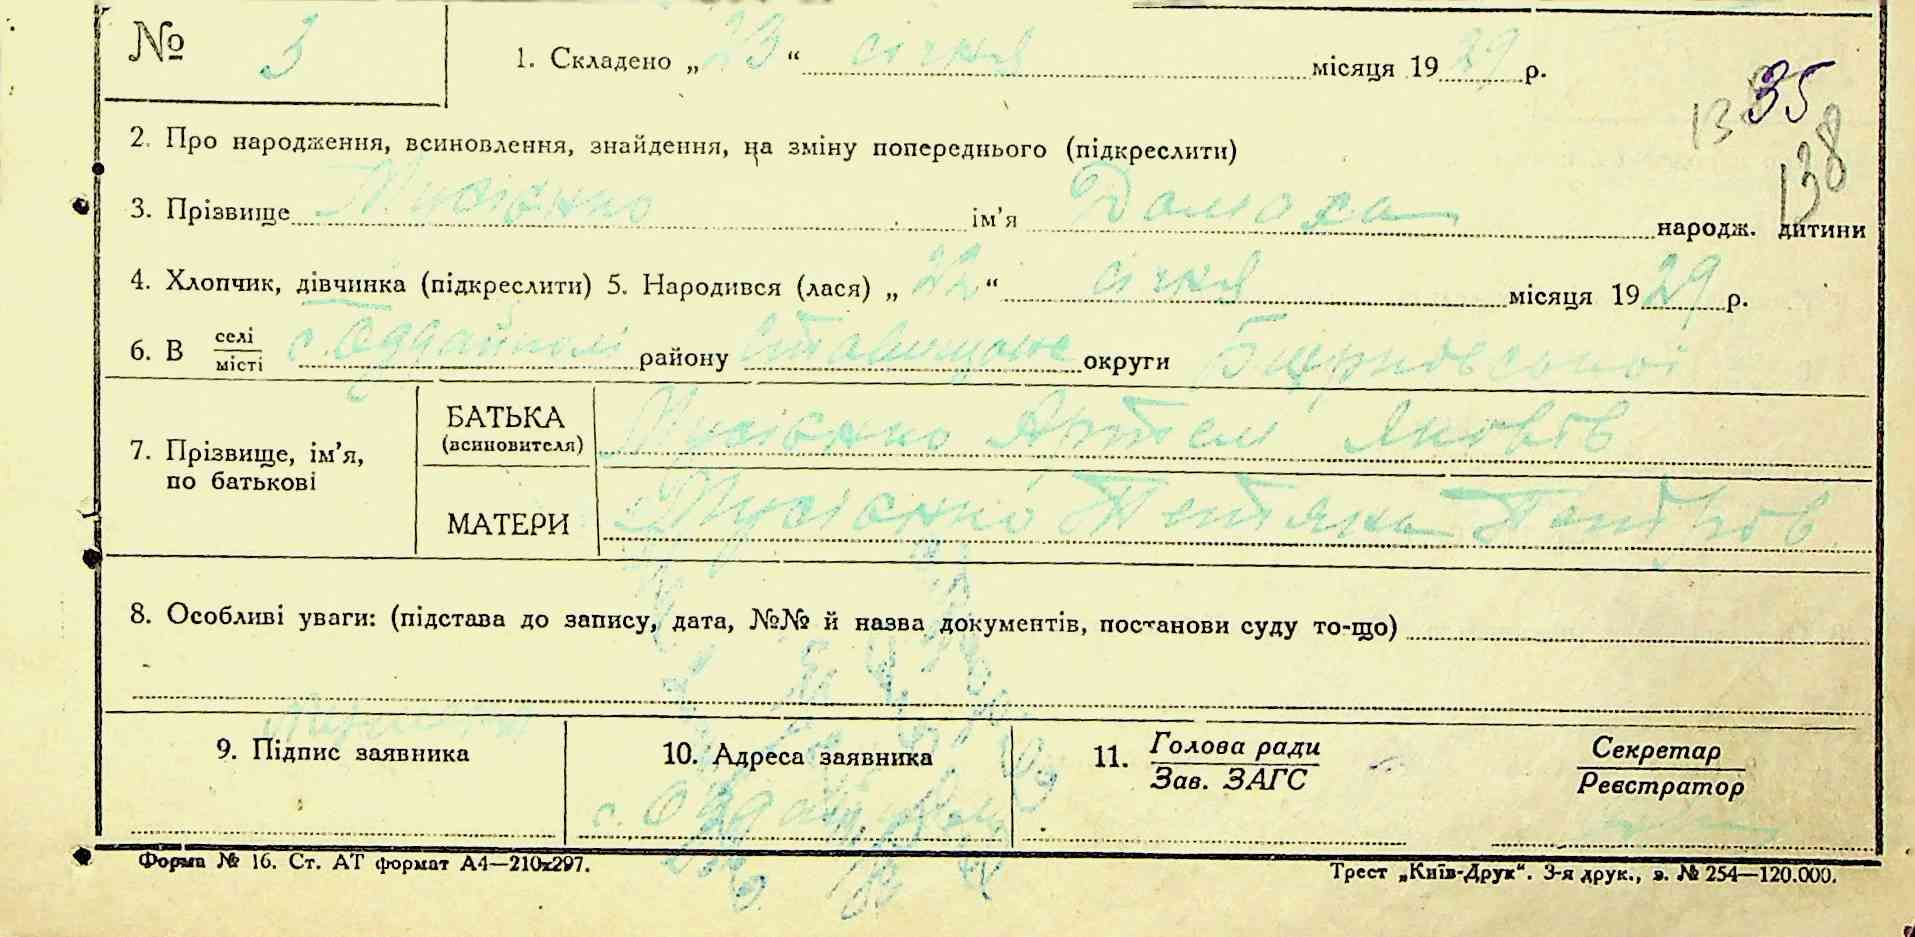 № 3
1. Складено „23“ січня місяця 1929 р.
35
138
2. Про народження, всиновлення, знайдення, на зміну попереднього (підкреслити)
3. Прізвище Мусієнко ім’я Домаха народж. дитини
4. Хлопчик, дівчинка (підкреслити) 5. Народився (лася) „22“ січня місяця 1929 р.
6. В селі/місті району округи Б
7. Прізвище, ім’я, по батькові
БАТЬКА (всиновителя) Мусієнко Артем Яковів
МАТЕРИ Мусієнко Тетяна
8. Особливі уваги: (підстава до запису, дата, №№ й назва документів, постанови суду то-що)
9. Підпис заявника
10. Адреса заявника
11. Голова ради
Зав. ЗАГС
Секретар
Реєстратор
Форма № 16. Ст. АТ формат А4—210х297.
Трест „Київ-Друк“. 3-я друк., з. № 254—120.000.